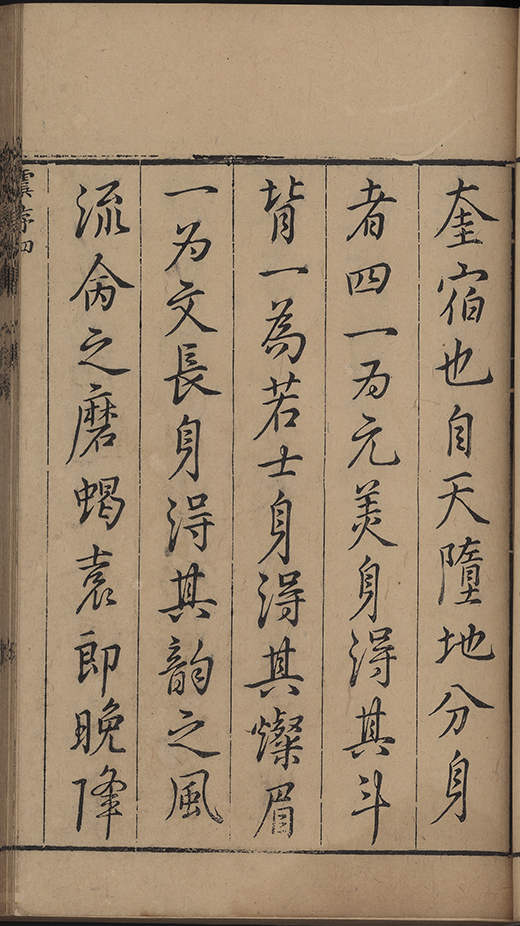 奎宿也自天墮地分身
者四一为元美身得其斗
背一為若士身得其燦眉
一为文長身得其韵之風
流命之磨蝎袁郎晚降
虞序四